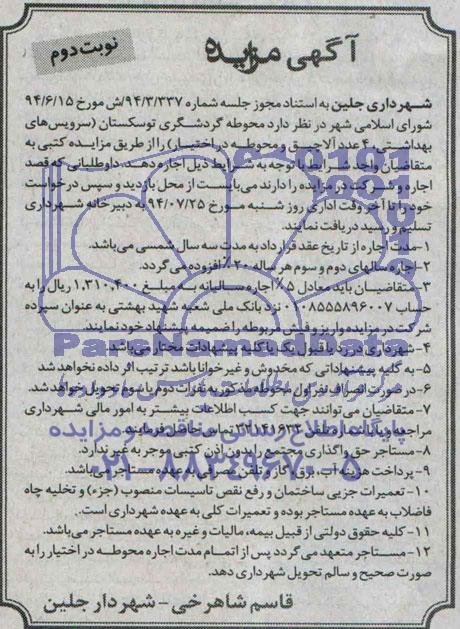 آگهی مزایده
نوبت دوم
شهرداری جلین به استناد مجوز جلسه شماره ۹۴/۳/۳۳۷/ش مورخ ۹۴/۶/۱۵
شورای اسلامی شهر در نظر دارد محوطه گردشگری توسکستان (سرویس‌های
بهداشتی، ۴ عدد آلاچیق و محوطه در اختیار) را از طریق مزایده کتبی به
متقاضیان واجد شرایط با توجه به شرایط ذیل اجاره دهد. داوطلبانی که قصد
اجاره و شرکت در مزایده را دارند می‌بایست از محل بازدید و سپس درخواست
خود را تا آخر وقت اداری روز شنبه مورخ ۹۴/۰۷/۲۵ به دبیرخانه شهرداری
تسلیم و رسید دریافت نمایند.
۱-مدت اجاره از تاریخ عقد قرارداد به مدت سه سال شمسی می‌باشد.
۲-اجاره سالهای دوم و سوم هر ساله ۲۰٪ افزوده می‌گردد.
۳-متقاضیان باید معادل ۵٪ اجاره سالیانه به مبلغ ۱,۳۱۰,۴۰۰ ریال را به
حساب ۰۱۰۸۵۵۵۸۹۶۰۰۷ نزد بانک ملی شعبه شهید بهشتی به عنوان سپرده
شرکت در مزایده واریز و فیش مربوطه را ضمیمه پیشنهاد خود نمایند.
۴-شهرداری در رد یا قبول یک یا کلیه پیشنهادات مختار می‌باشد.
۵-به کلیه پیشنهاداتی که مخدوش و غیرخوانا باشد ترتیب اثر داده نخواهد شد
۶-در صورت انصراف نفر اول محوطه مذکور به نفرات دوم یا سوم تحویل خواهد شد.
۷-متقاضیان می‌توانند جهت کسب اطلاعات بیشتر به امور مالی شهرداری
مراجعه و یا با شماره تلفن ۳۲۱۴۱۶۳۳ تماس حاصل فرمایند.
۸-مستاجر حق واگذاری مجتمع را بدون اذن کتبی موجر به غیر ندارد.
۹- پرداخت هزینه آب، برق، گاز و تلفن مصرفی به عهده مستاجر می‌باشد.
۱۰- تعمیرات جزیی ساختمان و رفع نقص تاسیسات منصوب (جزء) و تخلیه چاه
فاضلاب به عهده مستاجر بوده و تعمیرات کلی به عهده شهرداری است.
۱۱- کلیه حقوق دولتی از قبیل بیمه، مالیات و غیره به عهده مستاجر می‌باشد.
۱۲- مستاجر متعهد می‌گردد پس از اتمام مدت اجاره محوطه در اختیار را به
صورت صحیح و سالم تحویل شهرداری دهد.
قاسم شاهرخی - شهردار جلین
ParsNamadData
پایگاه اطلاع رسانی مناقصه و مزایده
۰۲۱-۸۸۳۴۹۶۷۰-۵